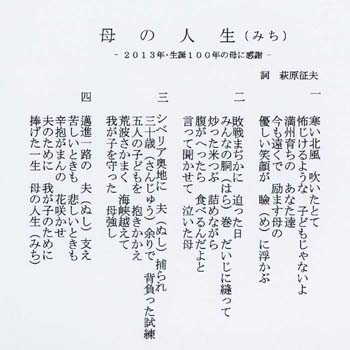 母の人生(みち)
- 2013年・生誕100年の母に感謝 -
詞 萩原征夫
一
寒い北風 吹いたとて
怖じけるような 子どもじゃないよ
満州育ちの あなた達
今も遠くで 励ます母の
優しい笑顔が 瞼(め)に浮かぶ
二
敗戦まぢかに 迫った日
みんなの胴(はら)巻 だいじに縫って
炒った米つぶ 詰めながら
腹がへったら 食べるんだよと
言って聞かせて 泣いた母
三
シベリア奥地に 夫(ぬし)捕られ
三十歳(さんじゅう)余りで 背負った試練
五人の子どもを 抱きかかえ
荒波さかまく 海峡越えて
我が子を守った 母強し
四
邁進一路の 夫(ぬし)支え
苦しいときも 悲しいときも
辛抱がまんの 花咲かせ
夫のために 我が子のために
捧げた一生 母の人生(みち)